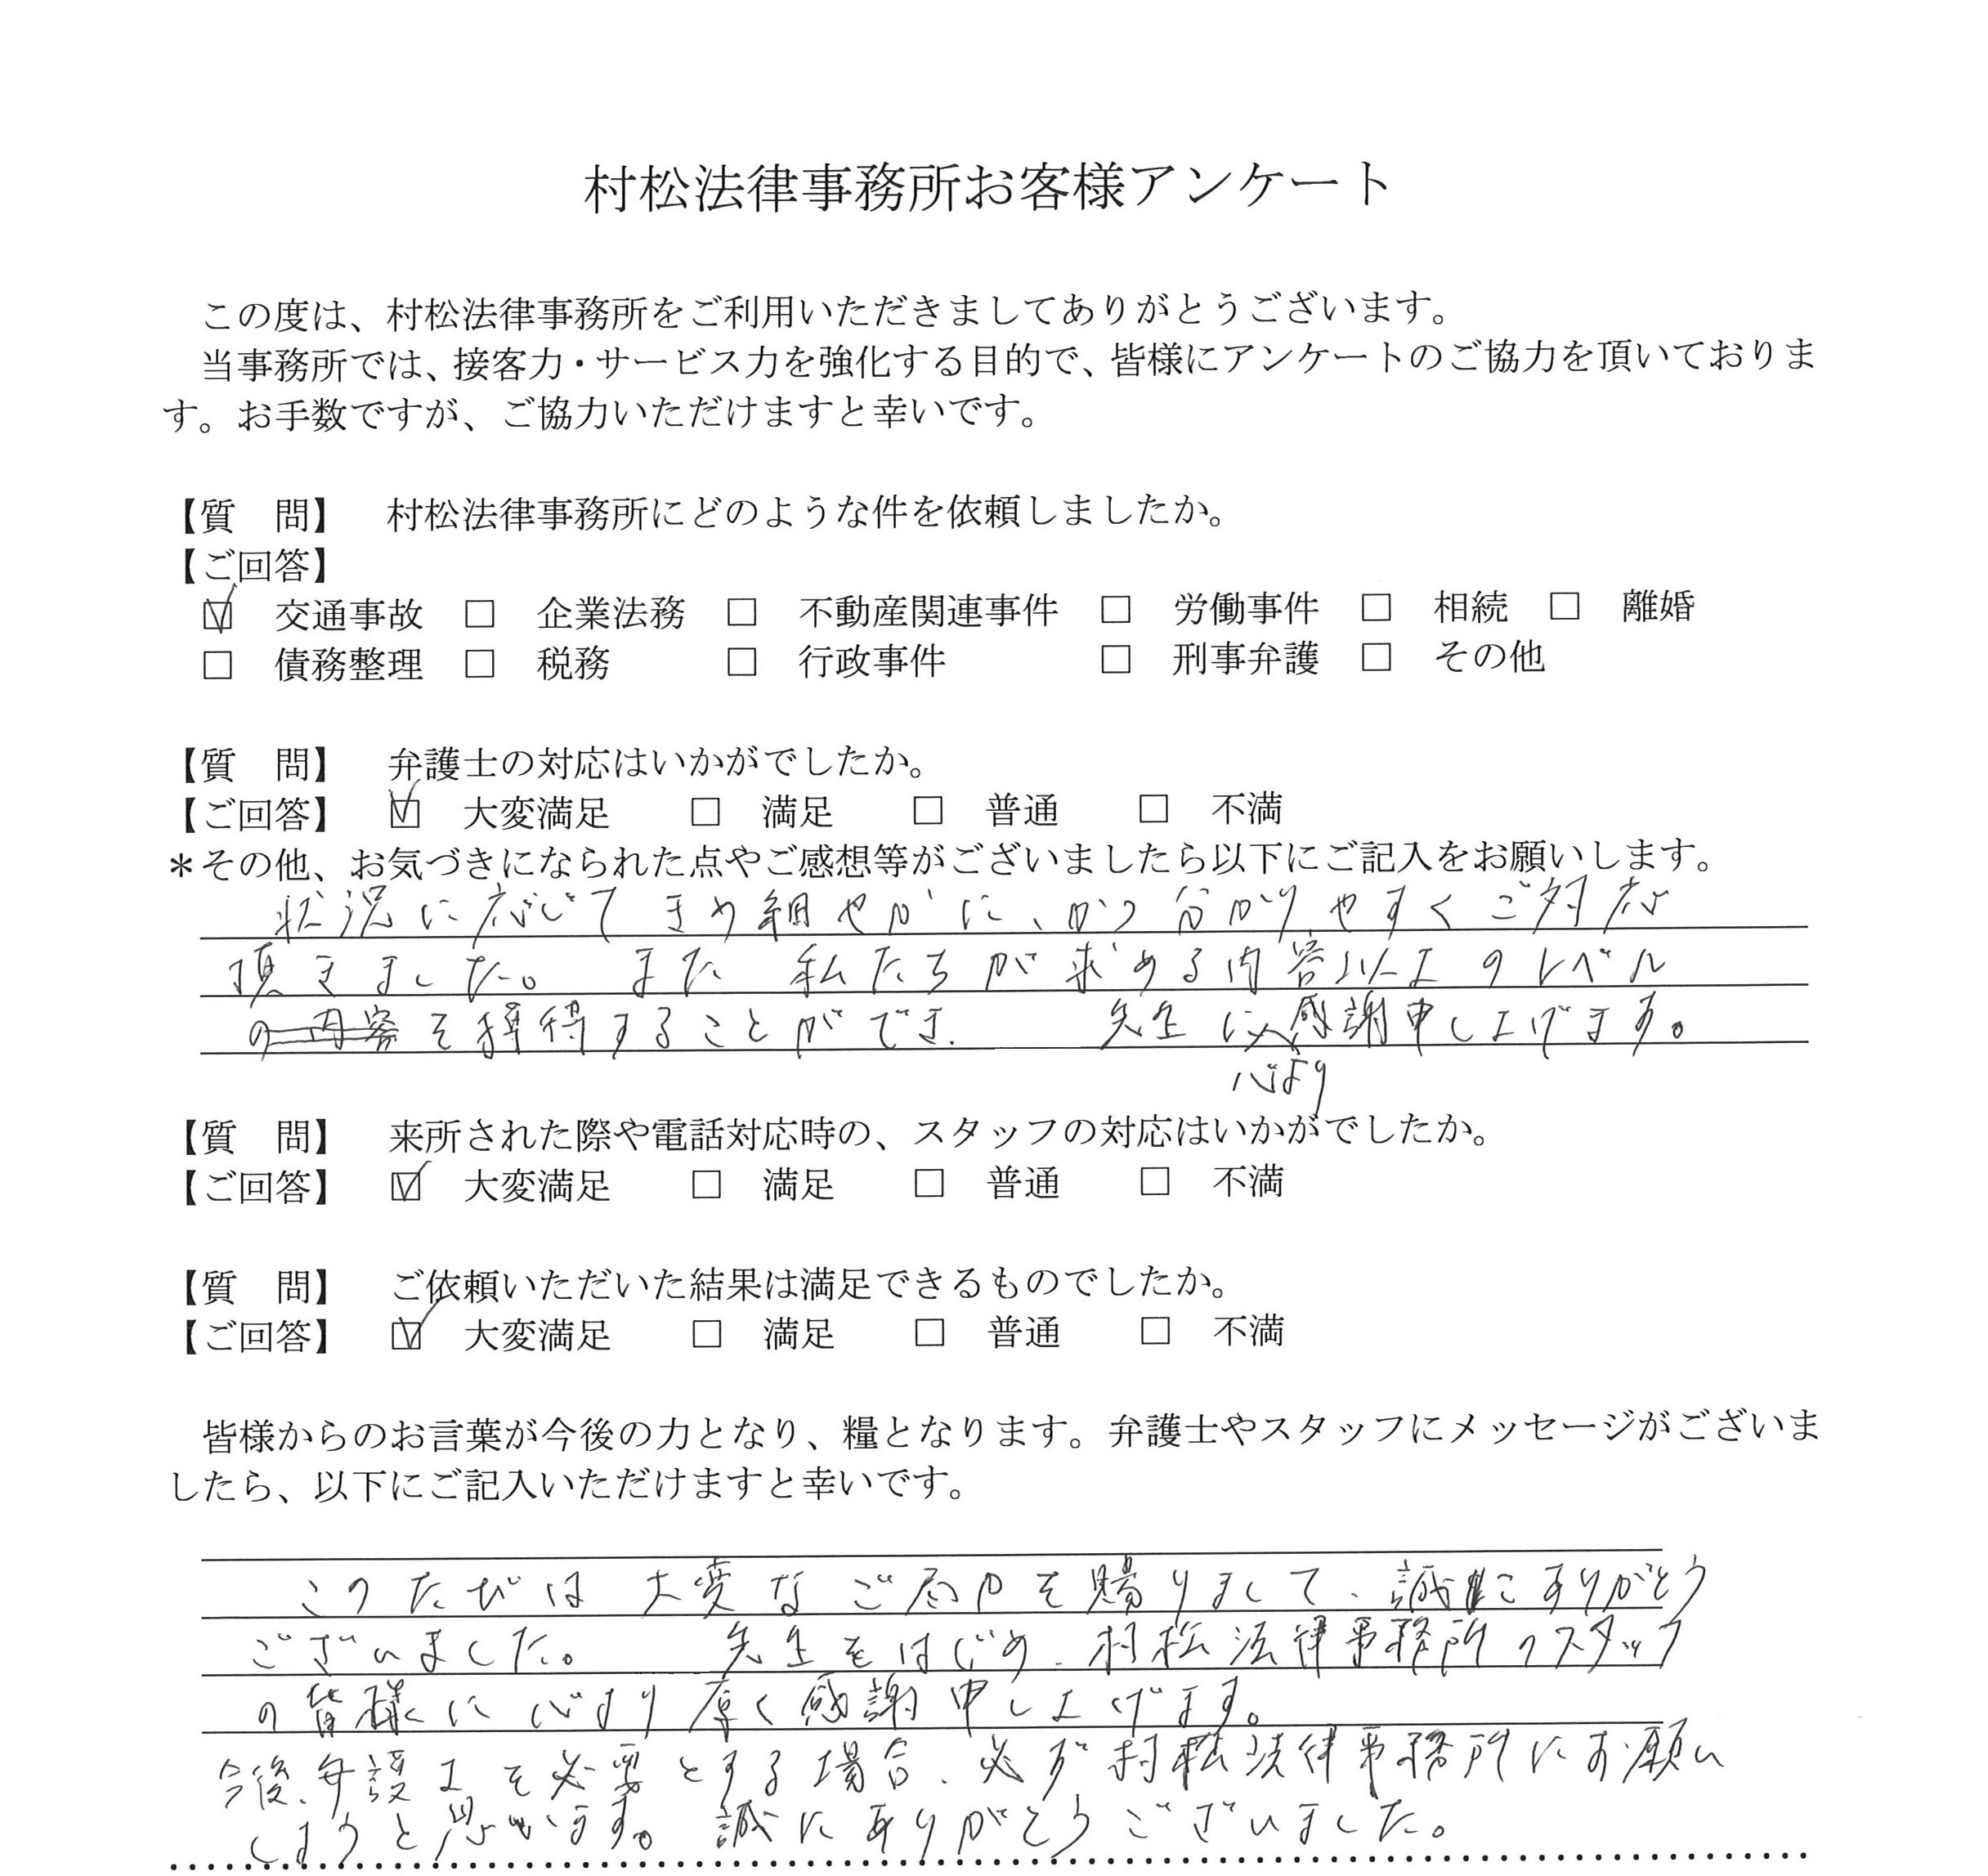 村松法律事務所お客様アンケート
この度は、村松法律事務所をご利用いただきましてありがとうございます。
当事務所では、接客力・サービス力を強化する目的で、皆様にアンケートのご協力を頂いておりま
す。お手数ですが、ご協力いただけますと幸いです。
【質　問】　村松法律事務所にどのような件を依頼しましたか。
【ご回答】
☑　交通事故　□　企業法務　□　不動産関連事件　□　労働事件　□　相続　□　離婚
□　債務整理　□　税務　□　行政事件　□　刑事弁護　□　その他
【質　問】　弁護士の対応はいかがでしたか。
【ご回答】　☑　大変満足　□　満足　□　普通　□　不満
＊その他、お気づきになられた点やご感想等がございましたら以下にご記入をお願いします。
状況に応じてきめ細やかに、かつ分かりやすくご対応
頂きました。また私たちが求める内容以上のレベル
の内容を獲得することができ、　先生に感謝申し上げます。
心より
【質　問】　来所された際や電話対応時の、スタッフの対応はいかがでしたか。
【ご回答】　☑　大変満足　□　満足　□　普通　□　不満
【質　問】　ご依頼いただいた結果は満足できるものでしたか。
【ご回答】　☑　大変満足　□　満足　□　普通　□　不満
皆様からのお言葉が今後の力となり、糧となります。弁護士やスタッフにメッセージがございま
したら、以下にご記入いただけますと幸いです。
このたびは大変なご尽力を賜りまして、誠にありがとう
ございました。　先生をはじめ、村松法律事務所のスタッフ
の皆様に心より厚く感謝申し上げます。
今後、弁護士を必要とする場合、必ず村松法律事務所にお願い
しようと思います。誠にありがとうございました。